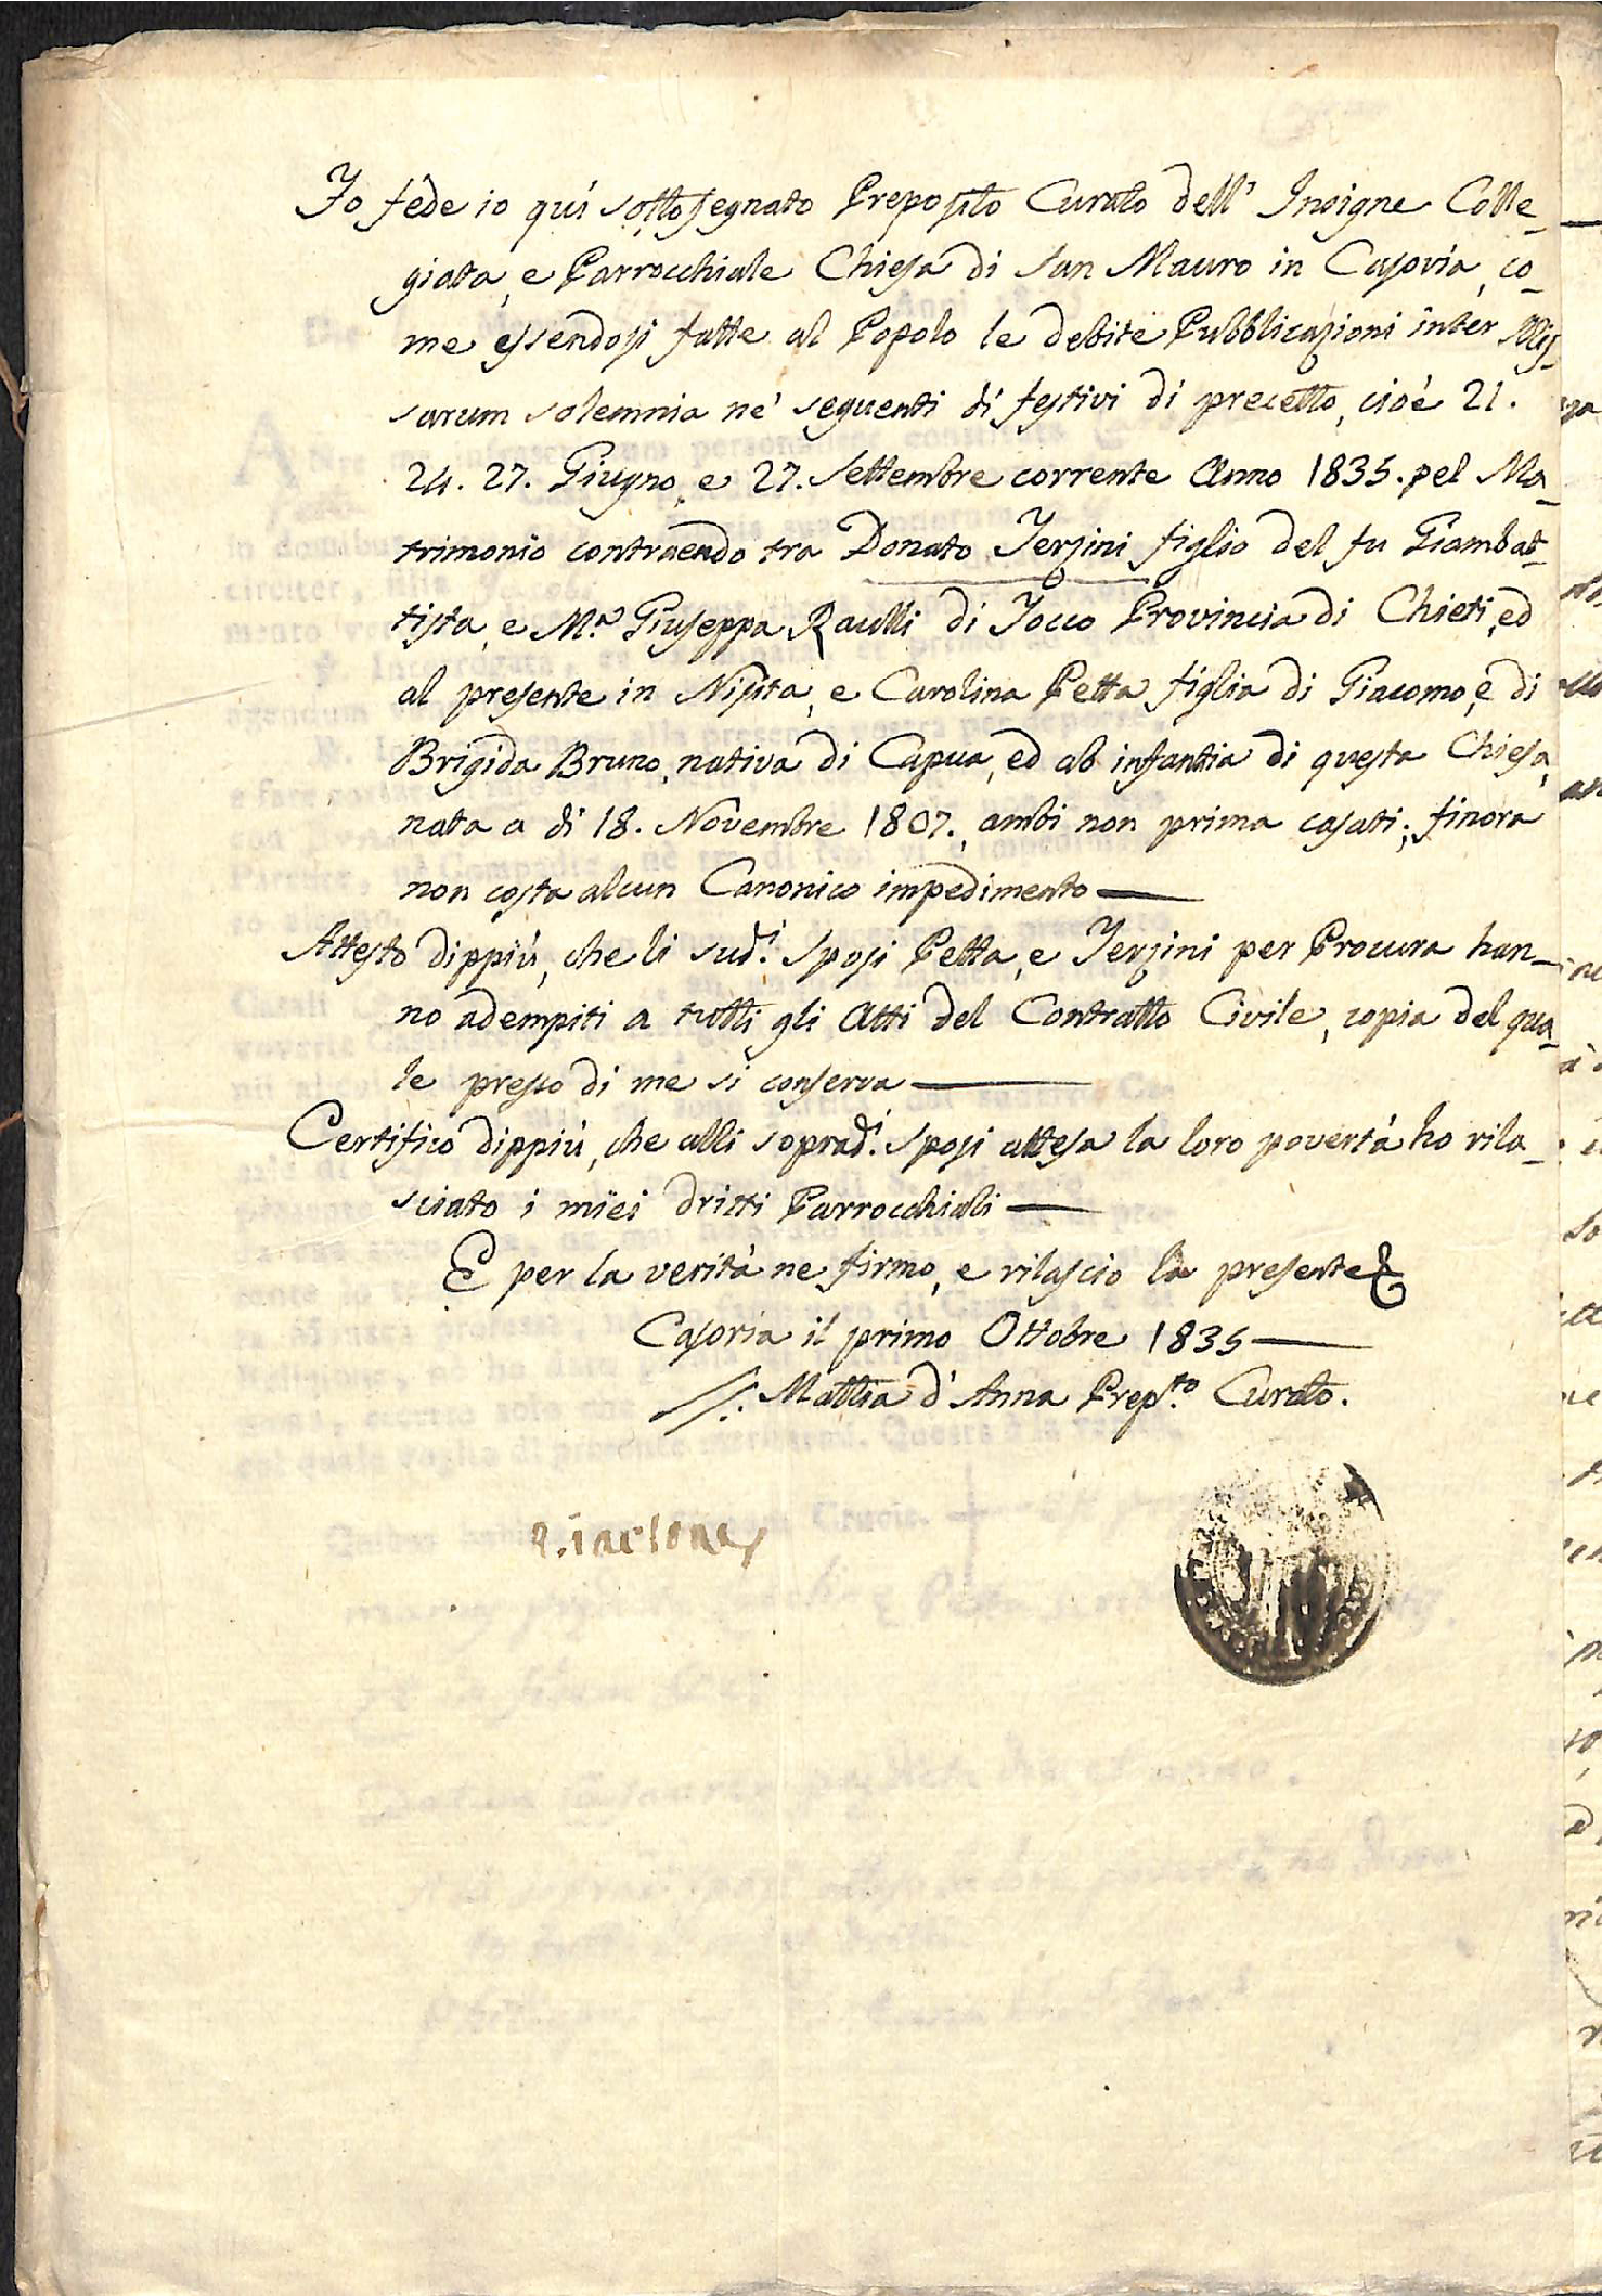 Fo fede io quì sottosegnato Preposito Curato dell' Insigne Colle-
giata, e Parrocchiale Chiesa di San Mauro in Casoria, co-
me essendosi fatte al Popolo le debite Pubblicazioni inter Mis-
sarum solemnia ne' seguenti dì festivi di precetto, cioè 21.
24. 27. Giugno, e 27. Settembre corrente Anno 1835. pel Ma-
trimonio contraendo tra Donato Terzini figlio del fu Giambat-
tista, e M.a Giuseppa Raulli di Tocco Provincia di Chieti, ed
al presente in Nisita, e Carolina Petta figlia di Giacomo, e di
Brigida Bruno, nativa di Capua, ed ab infantia di questa Chiesa,
nata a dì 18. Novembre 1807., ambi non prima casati; finora
non costa alcun Canonico impedimento —
Attesto dippiù, che li sud.i Sposi Petta, e Terzini per Procura han-
no adempiti a tutti gli Atti del Contratto Civile, copia del qua-
le presso di me si conserva —
Certifico dippiù, che alli soprad.i Sposi attesa la loro povertà ho rila-
sciato i miei dritti Parrocchiali —
E per la verità ne firmo, e rilascio la presente &
Casoria il primo Ottobre 1835 —
Mattia d'Anna Prep.to Curato.